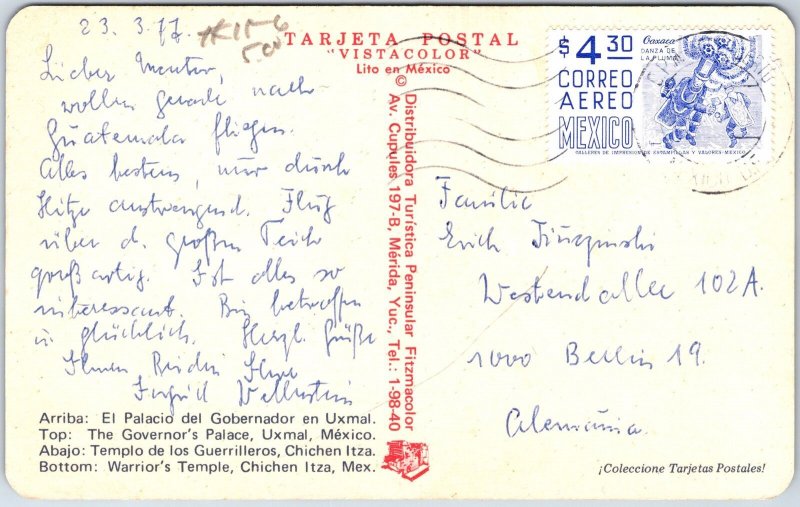 23. 3. 77.
TARJETA POSTAL
"VISTACOLOR"
Lito en México
Lieber Mentor,
wollen gerade nach
Guatemala fliegen.
Alles bestens, nur durch
Hitze anstrengend. Flug
über d. großen Teich
großartig. Ist alles so
interessant. Bin betroffen
u. glücklich. Herzl. Grüße
Ihnen Beiden Ihre
Ingrid
Arriba: El Palacio del Gobernador en Uxmal.
Top: The Governor's Palace, Uxmal, México.
Abajo: Templo de los Guerrilleros, Chichen Itza.
Bottom: Warrior's Temple, Chichen Itza, Mex.
© Distribuidora Turística Peninsular Fitzmacolor
Av. Cupules 197-B, Mérida, Yuc., Tel.: 1-98-40
$4.30
Oaxaca
DANZA DE
LA PLUMA
CORREO
AEREO
MEXICO
TALLERES DE IMPRESION DE ESTAMPILLAS Y VALORES-MEXICO
Familie
Erich
Westendallee 102A.
1000 Berlin 19.
Alemania.
¡Coleccione Tarjetas Postales!